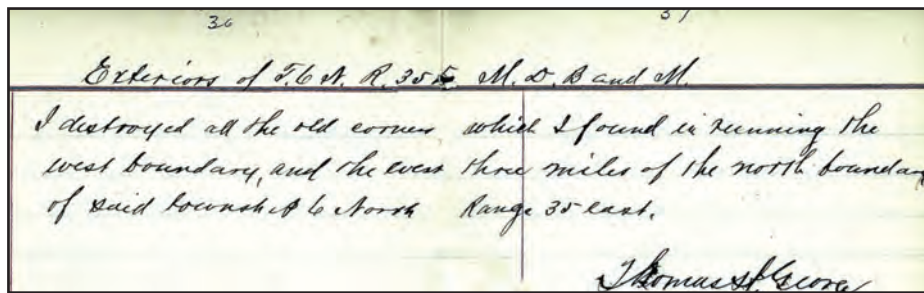 36 37
Exteriors of T. 6 N. R. 35 E. M. D. B and M.
I destroyed all the old corners which I found in running the
west boundary, and the west three miles of the north boundary
of said township 6 North Range 35 east.
Thomas